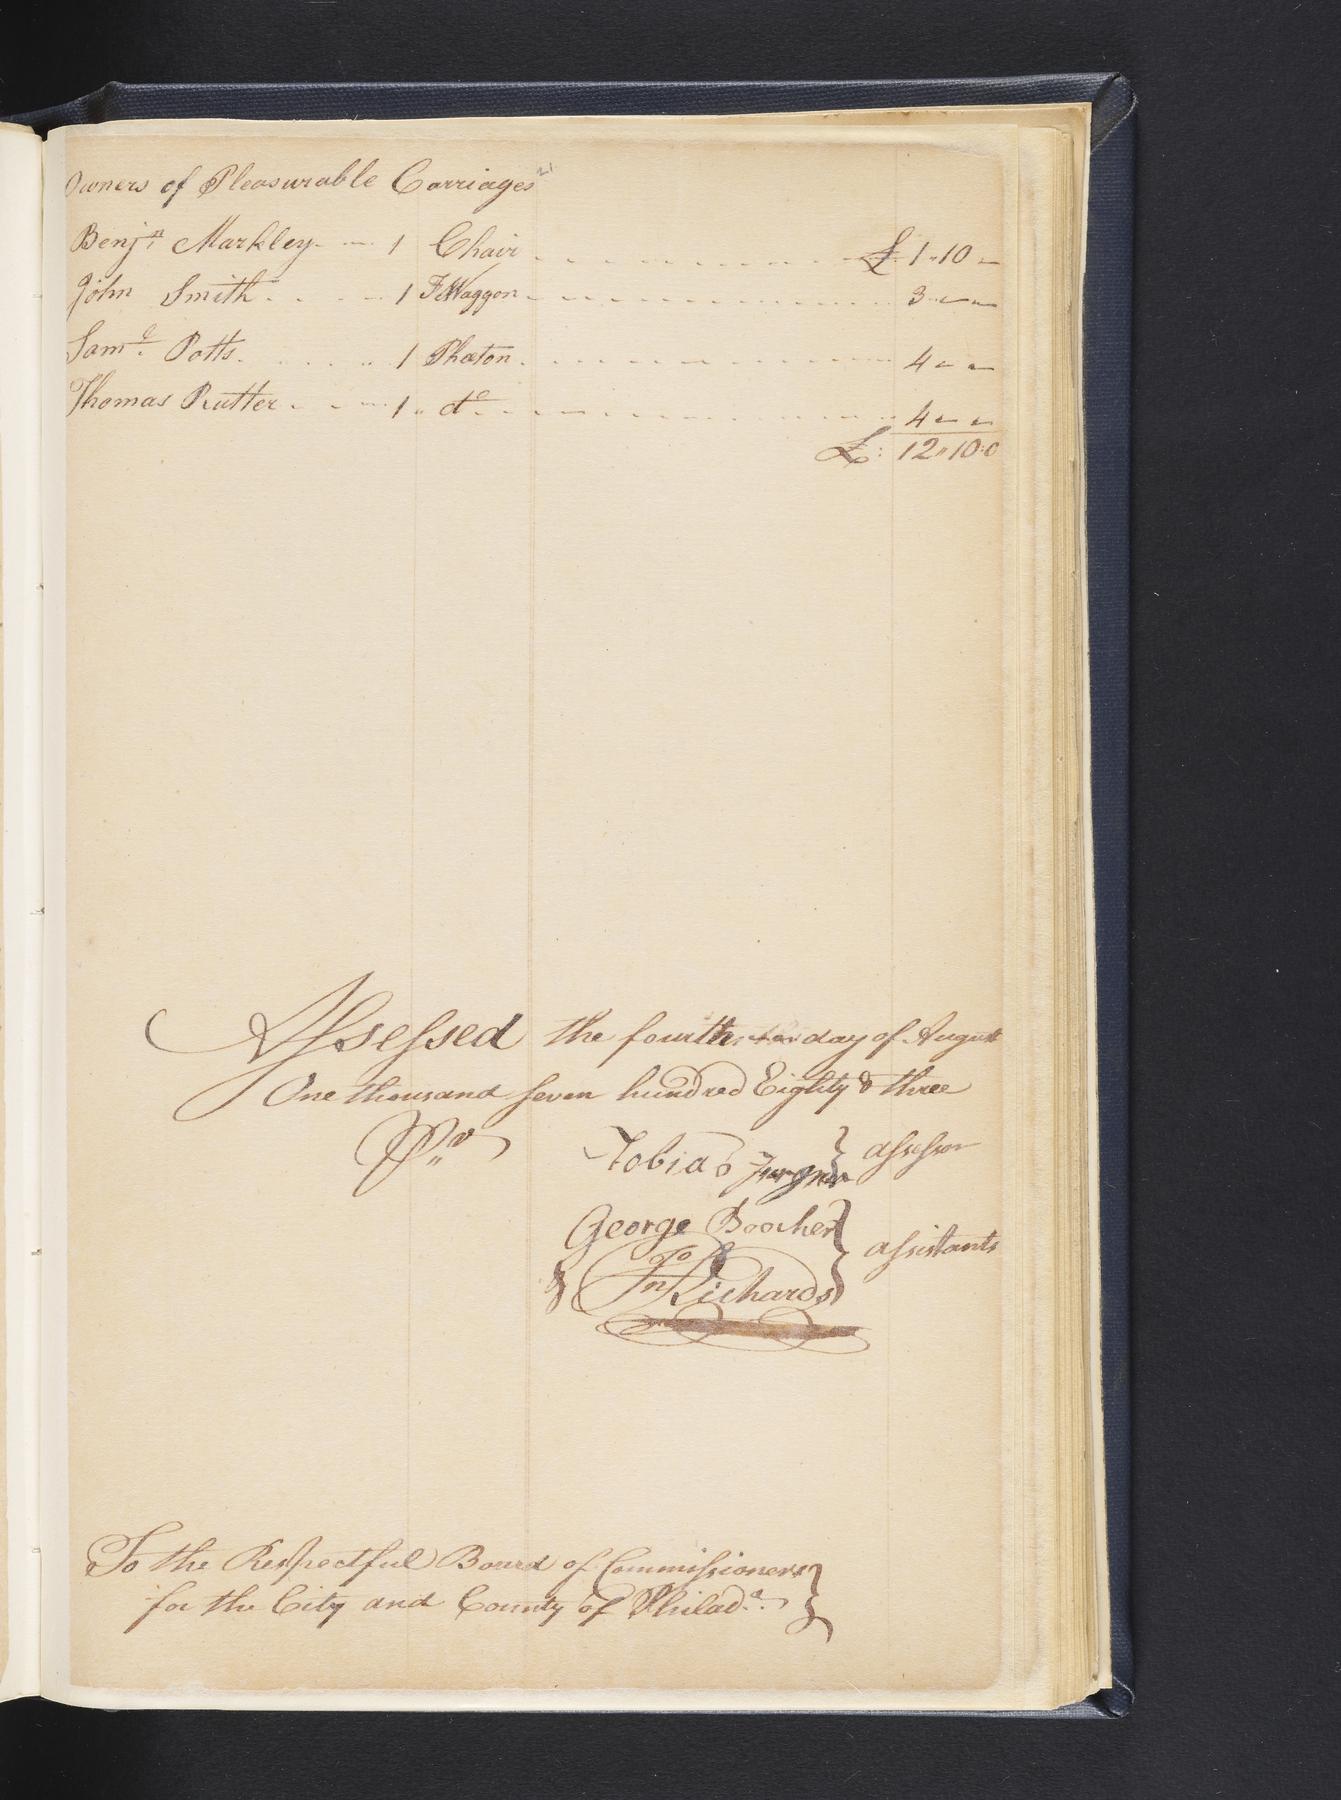 Owners of Pleasurable Carriages
Benjn Markley - - - 1 Chair - - - - - - - - £ 1 " 10 -
John Smith - - - - 1 F Waggon - - - - - - - - 3 - -
Saml. Potts - - - - 1 Phæton - - - - - - - - 4 - -
Thomas Rutter - - - 1 " do - - - - - - - - 4 - -
£: 12 " 10 : 0
Assessed the fourth day of August
One thousand seven hundred Eighty & three
Pr
Tobias } assessor
George Boocher } assistants
& Jno Richards
To the Respectful Board of Commissioners }
for the City and County of Philada. }